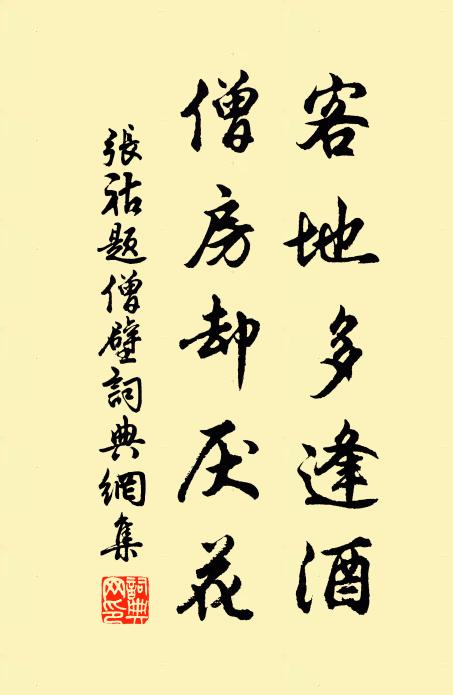 客地多逢酒
僧房却厌花
張祜題僧壁詞典網集
詞典